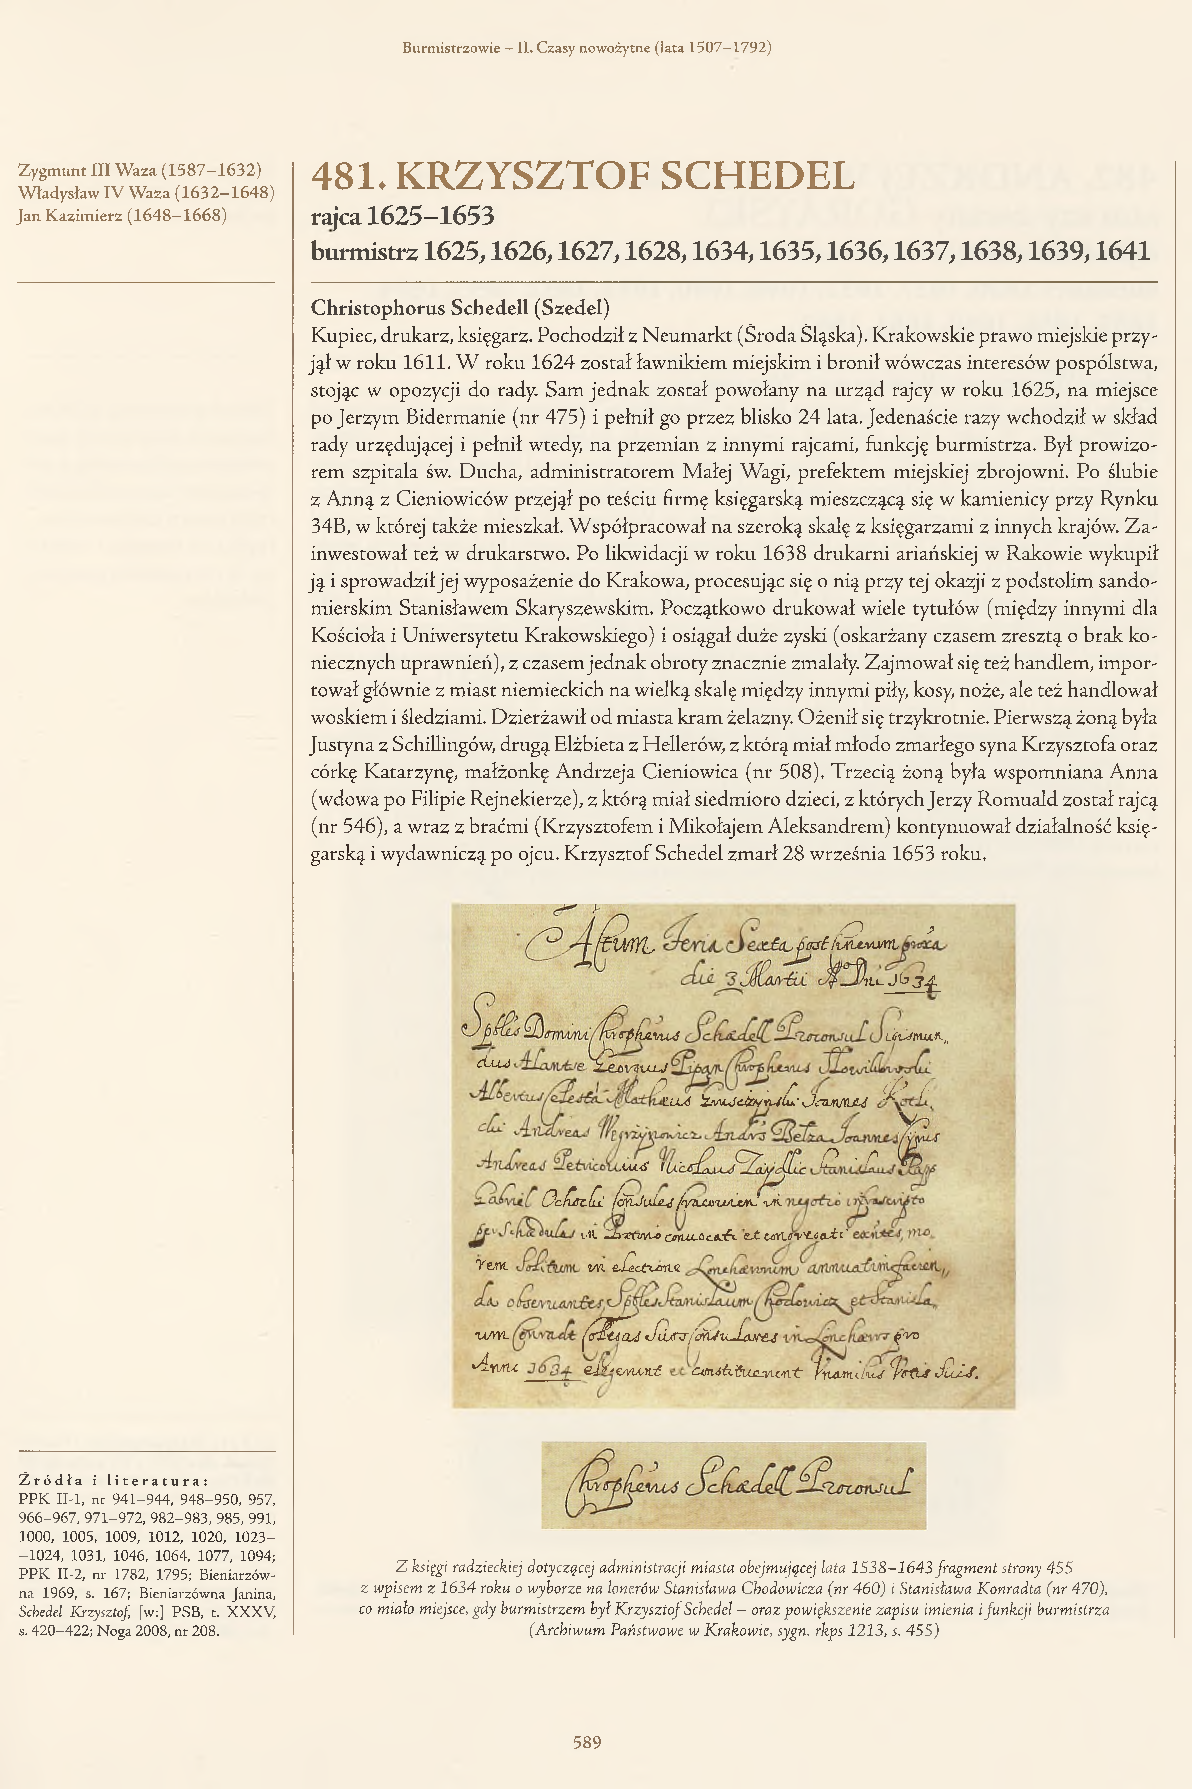 Burmistrzowie – II. Czasy nowożytne (lata 1507–1792)
Zygmunt III Waza (1587–1632)
Władysław IV Waza (1632–1648)
Jan Kazimierz (1648–1668)
481. KRZYSZTOF SCHEDEL
rajca 1625–1653
burmistrz 1625, 1626, 1627, 1628, 1634, 1635, 1636, 1637, 1638, 1639, 1641
Christophorus Schedell (Szedel)
Kupiec, drukarz, księgarz. Pochodził z Neumarkt (Środa Śląska). Krakowskie prawo miejskie przy-
jął w roku 1611. W roku 1624 został ławnikiem miejskim i bronił wówczas interesów pospólstwa,
stojąc w opozycji do rady. Sam jednak został powołany na urząd rajcy w roku 1625, na miejsce
po Jerzym Bidermanie (nr 475) i pełnił go przez blisko 24 lata. Jedenaście razy wchodził w skład
rady urzędującej i pełnił wtedy, na przemian z innymi rajcami, funkcję burmistrza. Był prowizo-
rem szpitala św. Ducha, administratorem Małej Wagi, prefektem miejskiej zbrojowni. Po ślubie
z Anną z Cieniowiców przejął po teściu firmę księgarską mieszczącą się w kamienicy przy Rynku
34B, w której także mieszkał. Współpracował na szeroką skalę z księgarzami z innych krajów. Za-
inwestował też w drukarstwo. Po likwidacji w roku 1638 drukarni ariańskiej w Rakowie wykupił
ją i sprowadził jej wyposażenie do Krakowa, procesując się o nią przy tej okazji z podstolim sando-
mierskim Stanisławem Skaryszewskim. Początkowo drukował wiele tytułów (między innymi dla
Kościoła i Uniwersytetu Krakowskiego) i osiągał duże zyski (oskarżany czasem zresztą o brak ko-
niecznych uprawnień), z czasem jednak obroty znacznie zmalały. Zajmował się też handlem, impor-
tował głównie z miast niemieckich na wielką skalę między innymi piły, kosy, noże, ale też handlował
woskiem i śledziami. Dzierżawił od miasta kram żelazny. Ożenił się trzykrotnie. Pierwszą żoną była
Justyna z Schillingów, drugą Elżbieta z Hellerów, z którą miał młodo zmarłego syna Krzysztofa oraz
córkę Katarzynę, małżonkę Andrzeja Cieniowica (nr 508). Trzecią żoną była wspomniana Anna
(wdowa po Filipie Rejnekierze), z którą miał siedmioro dzieci, z których Jerzy Romuald został rajcą
(nr 546), a wraz z braćmi (Krzysztofem i Mikołajem Aleksandrem) kontynuował działalność księ-
garską i wydawniczą po ojcu. Krzysztof Schedel zmarł 28 września 1653 roku.
Actum Feria Sexta post
die 3 Martii Dni 1634
Domini Schedell Proconsul Sigismun„
dus Alantse Georgius Pipan
Albertus Celesta Mathaeus Joannes
Andreas Węgrzynowicz Andrs Belza Joannes Cyrus
Andreas Petricouius Nicolaus Zaydlic Stanislaus
Gabriel Ochocki Consules in negotio
per Schedulas in conuocati et congregati mo„
rem Solitum in electione annuatim facien„
da obseruantes Stanislaum Chodowicz et Stanisla„
um Conradt Collegas Suos Consulares in pro
Anno 1634 elegerunt et constituerunt Votis Suis.
Schedell Proconsul
Źródła i literatura:
PPK II-1, nr 941–944, 948–950, 957,
966–967, 971–972, 982–983, 985, 991,
1000, 1005, 1009, 1012, 1020, 1023–
–1024, 1031, 1046, 1064, 1077, 1094;
PPK II-2, nr 1782, 1795; Bieniarzów-
na 1969, s. 167; Bieniarzówna Janina,
Schedel Krzysztof, [w:] PSB, t. XXXV,
s. 420–422; Noga 2008, nr 208.
Z księgi radzieckiej dotyczącej administracji miasta obejmującej lata 1538–1643 fragment strony 455
z wpisem z 1634 roku o wyborze na lonerów Stanisława Chodowicza (nr 460) i Stanisława Konradta (nr 470),
co miało miejsce, gdy burmistrzem był Krzysztof Schedel – oraz powiększenie zapisu imienia i funkcji burmistrza
(Archiwum Państwowe w Krakowie, sygn. rkps 1213, s. 455)
589